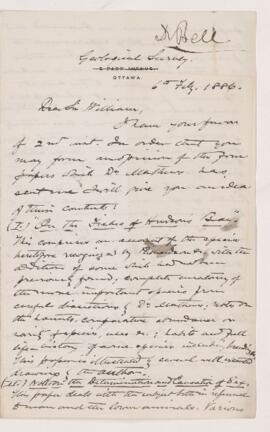 R Bell
Geological Survey.
OTTAWA.
6th Feby. 1886.
Dear Sir William,
I have yours from
of 2nd inst. In order that you
may form an opinion of the four
papers which Dr. Matthews has
sent me I will give you an idea
of their contents:
(I.) On the Fishes of Hudson's Bay
This comprises an account of the species
heretofore recognized by Richardson &c with the
addition of some which had not been
previously found; complete
of the more important species from
careful by Dr. Matthews; notes on
the haunts, comparative abundance or
rarity, uses &c; habits and full
life history of some species
This paper is illustrated by several well executed
drawings by the author.
(II.) Notes on the Determination and Causation of Sex.
This paper deals with the subject both in reference
to man and the lower animals. Various